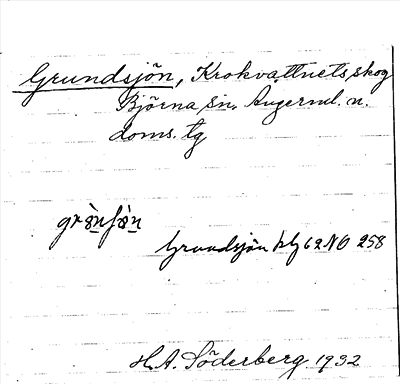 Grundsjön, Krokvattnets skog
Björna sn. Ångerml. n.
doms. tg
Grundsjön hlg 62 NO 258
H.A. Söderberg. 1932